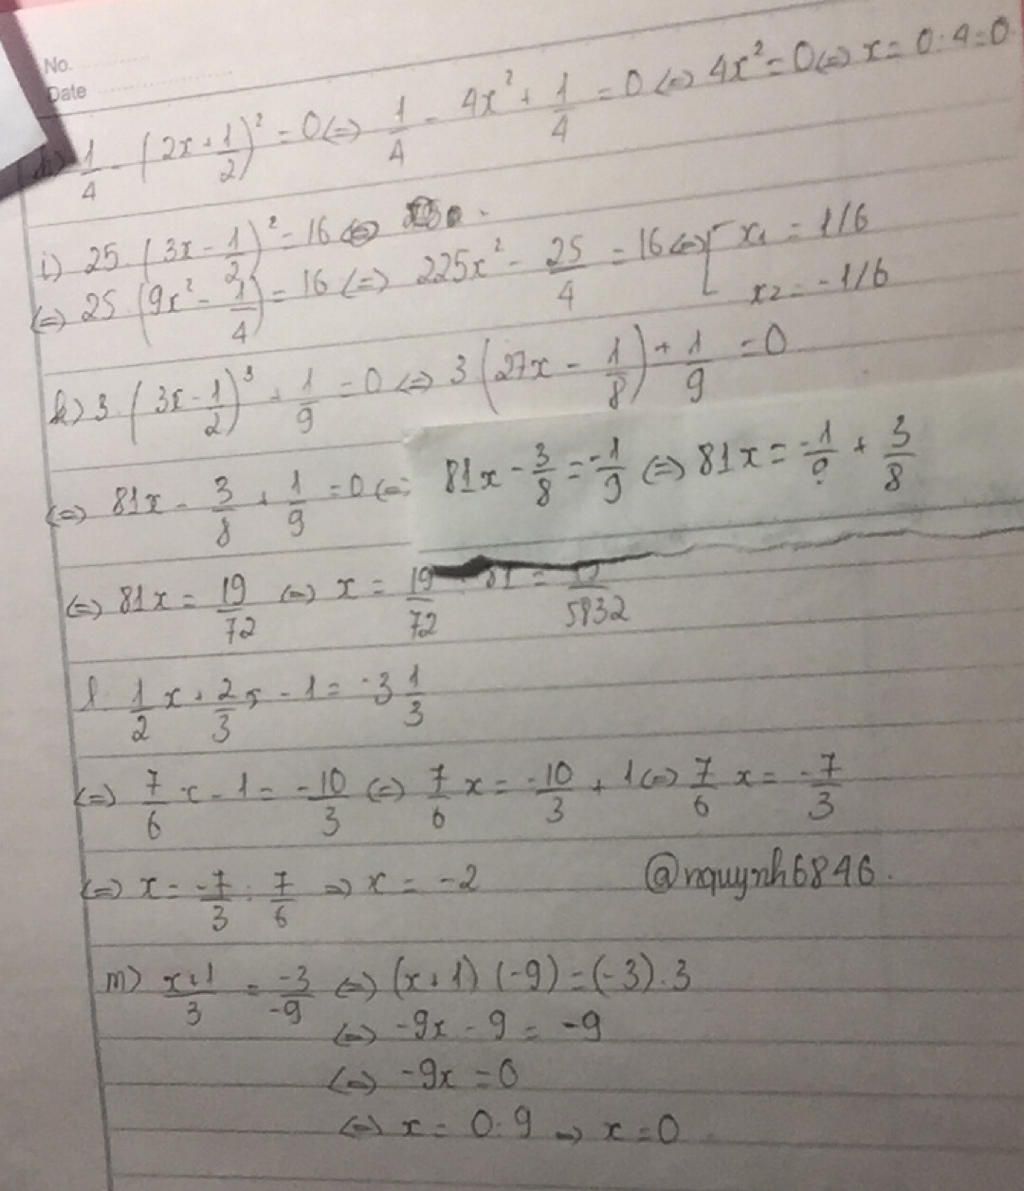 No.
Date
h) 1/4 - (2x + 1/2)² = 0 <=> 1/4 - 4x² + 1/4 = 0 <=> 4x² = 0 <=> x = 0 : 4 = 0
i) 25 . (3x - 1/2)² = 16 <=>
<=> 25 . (9x² - 1/4) = 16 <=> 225x² - 25/4 = 16 <=> [ x₁ = 1/6
x₂ = -1/6
k) 3 . (3x - 1/2)³ + 1/9 = 0 <=> 3 (27x - 1/8) + 1/9 = 0
<=> 81x - 3/8 + 1/9 = 0 <=> 81x - 3/8 = -1/9 <=> 81x = -1/9 + 3/8
<=> 81x = 19/72 <=> x = 19/72 : 81 = 19/5832
l 1/2 x + 2/3 x - 1 = -3 1/3
<=> 7/6 x - 1 = -10/3 <=> 7/6 x = -10/3 + 1 <=> 7/6 x = -7/3
<=> x = -7/3 : 7/6 => x = -2
@nquynh6846.
m) x+1/3 = -3/-9 <=> (x + 1) (-9) = (-3) . 3
<=> -9x - 9 = -9
<=> -9x = 0
<=> x = 0 : 9 => x = 0